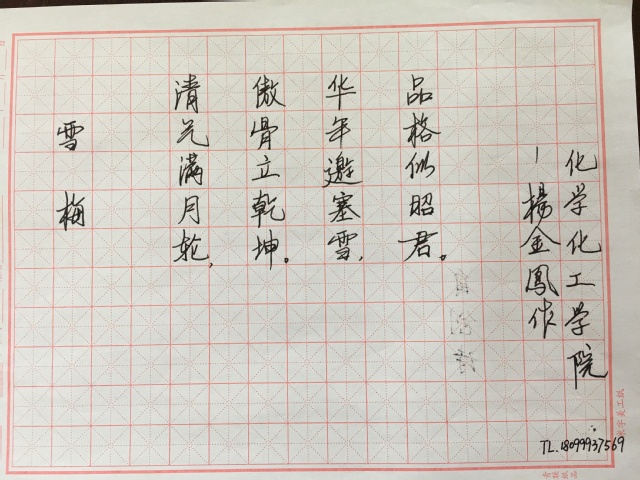 雪梅
清光满月轮,
傲骨立乾坤。
华年邀塞雪,
品格似昭君。
-楊金鳳作
化学化工学院
TL.18099937569